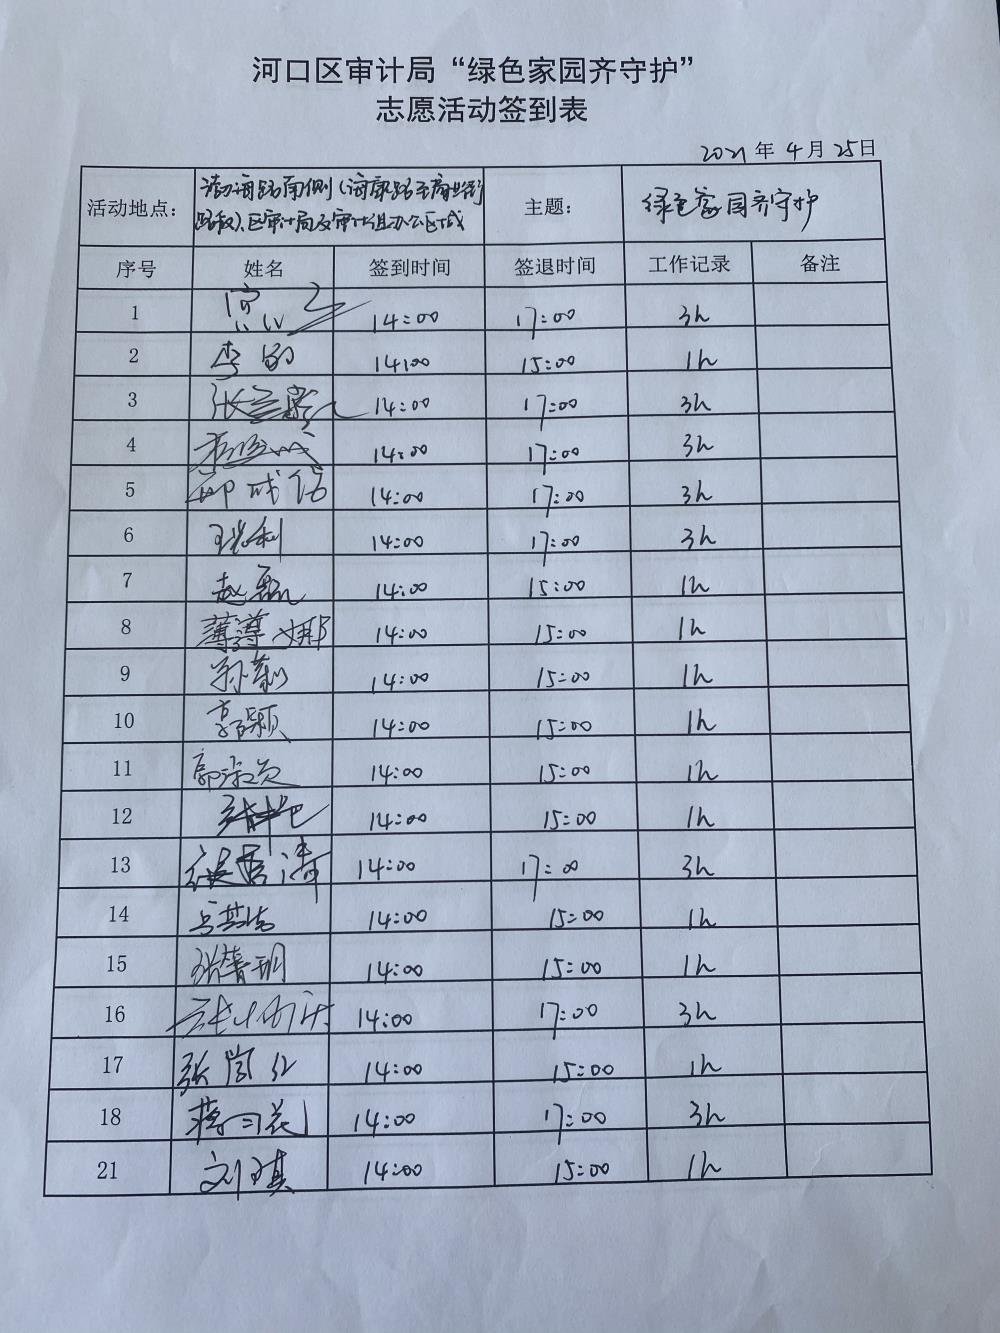 河口区审计局“绿色家园齐守护”
志愿活动签到表
2021年4月25日
活动地点： 渤海路南侧（海康路至商业街 主题： 绿色家园齐守护
路段）、区审计局及审计组办公区域
序号 姓名 签到时间 签退时间 工作记录 备注
1 14:00 17:00 3h
2 李 14:00 15:00 1h
3 张 14:00 17:00 3h
4 14:00 17:00 3h
5 14:00 17:00 3h
6 14:00 17:00 3h
7 赵磊 14:00 15:00 1h
8 14:00 15:00 1h
9 孙莉 14:00 15:00 1h
10 李颖 14:00 15:00 1h
11 郭 14:00 15:00 1h
12 14:00 15:00 1h
13 14:00 17:00 3h
14 14:00 15:00 1h
15 张 14:00 15:00 1h
16 14:00 17:00 3h
17 张 14:00 15:00 1h
18 蒋 花 14:00 17:00 3h
21 刘琪 14:00 15:00 1h